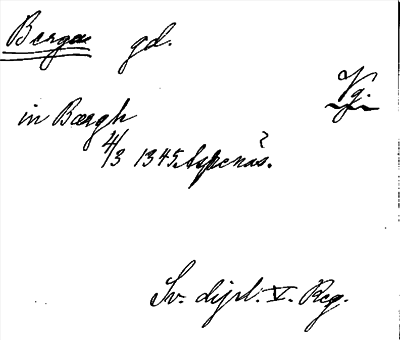 Bergau gd.
Vg.
in Bærgh
4/3 1345 Aspenäs. ?
Sv. dipl. V. Reg.